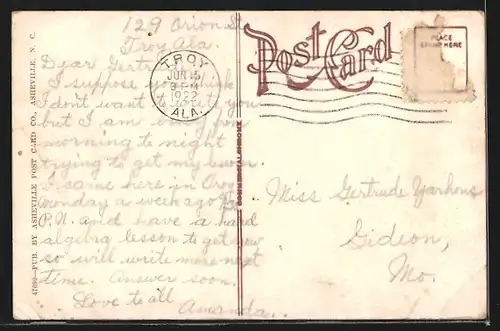 129 Orion St.
Troy Ala.
Dear Gertr
I suppose you think
I don't want to write you
but I am busy from
morning to night
trying to get my lesson.
I came here in Troy
Monday a week ago
P.M. and have a hard
algebra lesson to get now
so will write more next
time. Answer soon.
Love to all
Amanda.
47869-PUB. BY ASHEVILLE POST CARD CO., ASHEVILLE, N. C.
TROY
JUN 15
1922
ALA.
Post Card
PLACE
STAMP HERE
Miss Gertrude
Gideon,
Mo.